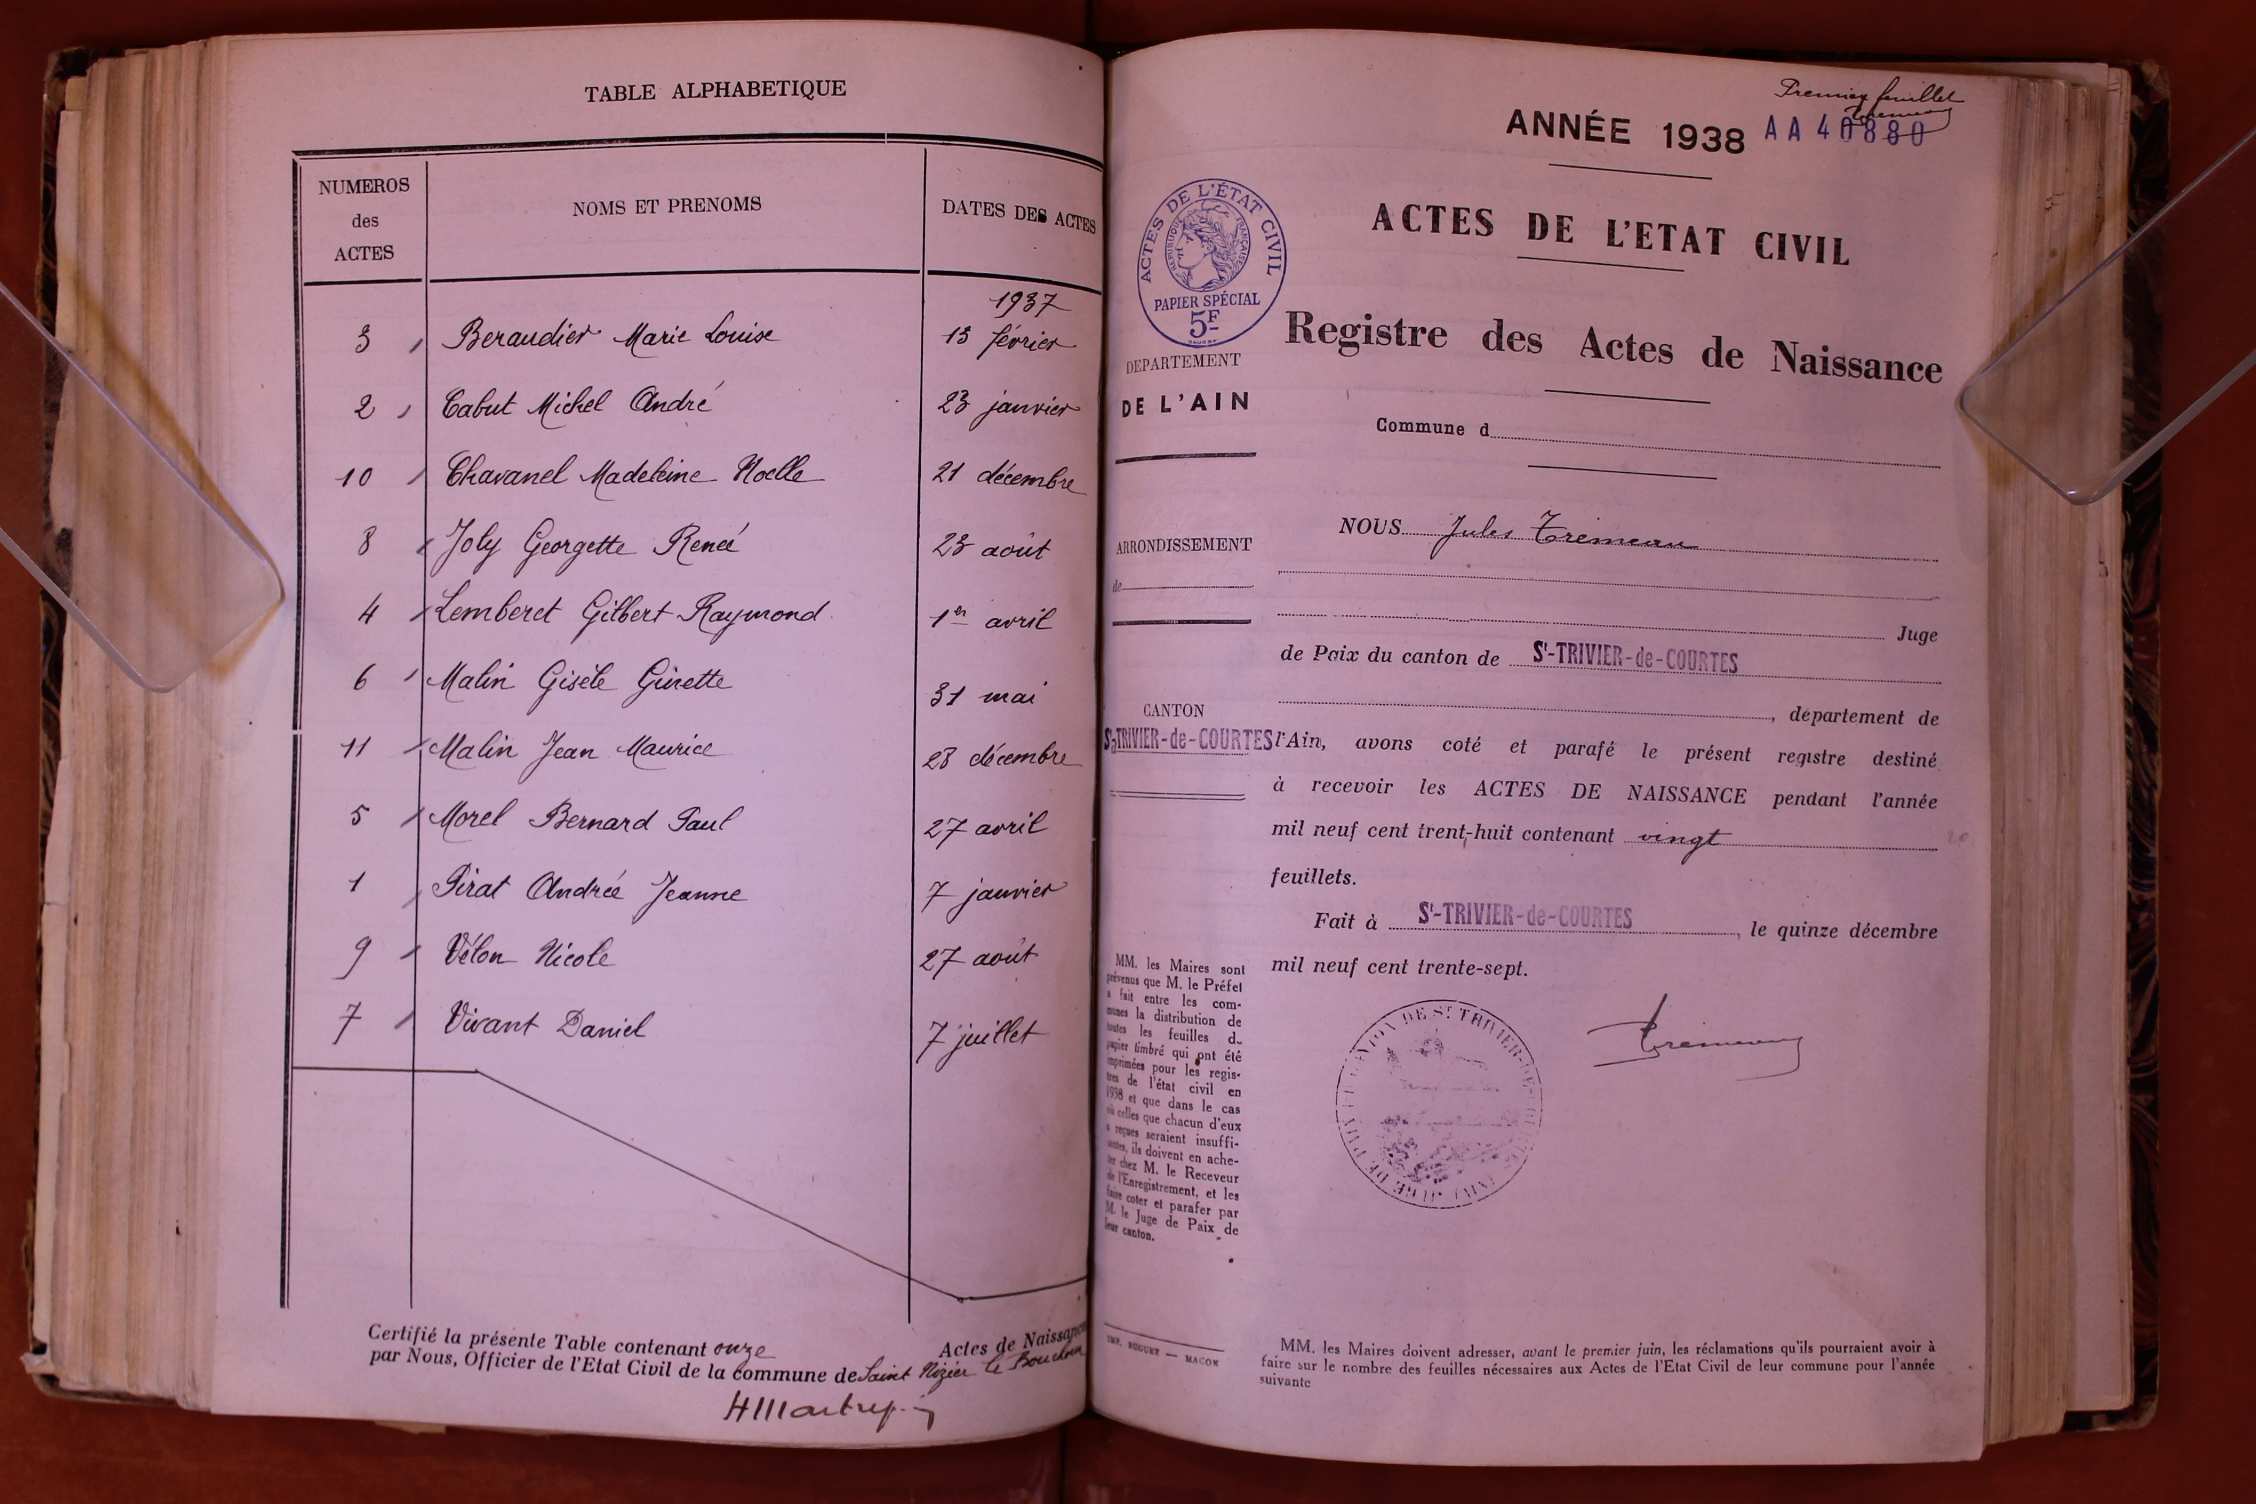 TABLE ALPHABETIQUE
NUMEROS
des
ACTES
NOMS ET PRENOMS
DATES DES ACTES
1937
3 Beraudier Marie Louise 13 février
2 Cabut Michel André 23 janvier
10 Chavanel Madeleine Noelle 21 décembre
8 Joly Georgette Renée 23 août
4 Lemberet Gilbert Raymond 1er avril
6 Malin Gisèle Ginette 31 mai
11 Malin Jean Maurice 28 décembre
5 Morel Bernard Paul 27 avril
1 Pirat Andrée Jeanne 7 janvier
9 Vélon Nicole 27 août
7 Vivant Daniel 7 juillet
Certifié la présente Table contenant onze Actes de Naissance
par Nous, Officier de l'Etat Civil de la commune de Saint Nizier le Bouchoux
Premier feuillet
ANNÉE 1938 AA 40880
ACTES DE L'ÉTAT CIVIL
RÉPUBLIQUE FRANÇAISE
PAPIER SPÉCIAL
5F
DEPARTEMENT
DE L'AIN
ARRONDISSEMENT
de
CANTON
St-TRIVIER-de-COURTES
MM. les Maires sont
prévenus que M. le Préfet
a fait entre les com-
munes la distribution de
toutes les feuilles d
papier timbré qui ont été
imprimées pour les regis-
tres de l'état civil en
1938 et que dans le cas
où celles que chacun d'eux
a reçues seraient insuffi-
santes, ils doivent en ache-
ter chez M. le Receveur
de l'Enregistrement, et les
faire coter et parafer par
M. le Juge de Paix de
leur canton.
ACTES DE L'ETAT CIVIL
Registre des Actes de Naissance
Commune d
NOUS Jules Trémeau
Juge
de Paix du canton de St-TRIVIER-de-COURTES
, département de
l'Ain, avons coté et parafé le présent registre destiné
à recevoir les ACTES DE NAISSANCE pendant l'année
mil neuf cent trent-huit contenant vingt 20
feuillets.
Fait à St-TRIVIER-de-COURTES, le quinze décembre
mil neuf cent trente-sept.
CANTON DE St TRIVIER-DE-
Trémeau
MM. les Maires doivent adresser, avant le premier juin, les réclamations qu'ils pourraient avoir à
faire sur le nombre des feuilles nécessaires aux Actes de l'Etat Civil de leur commune pour l'année
suivante
MACON